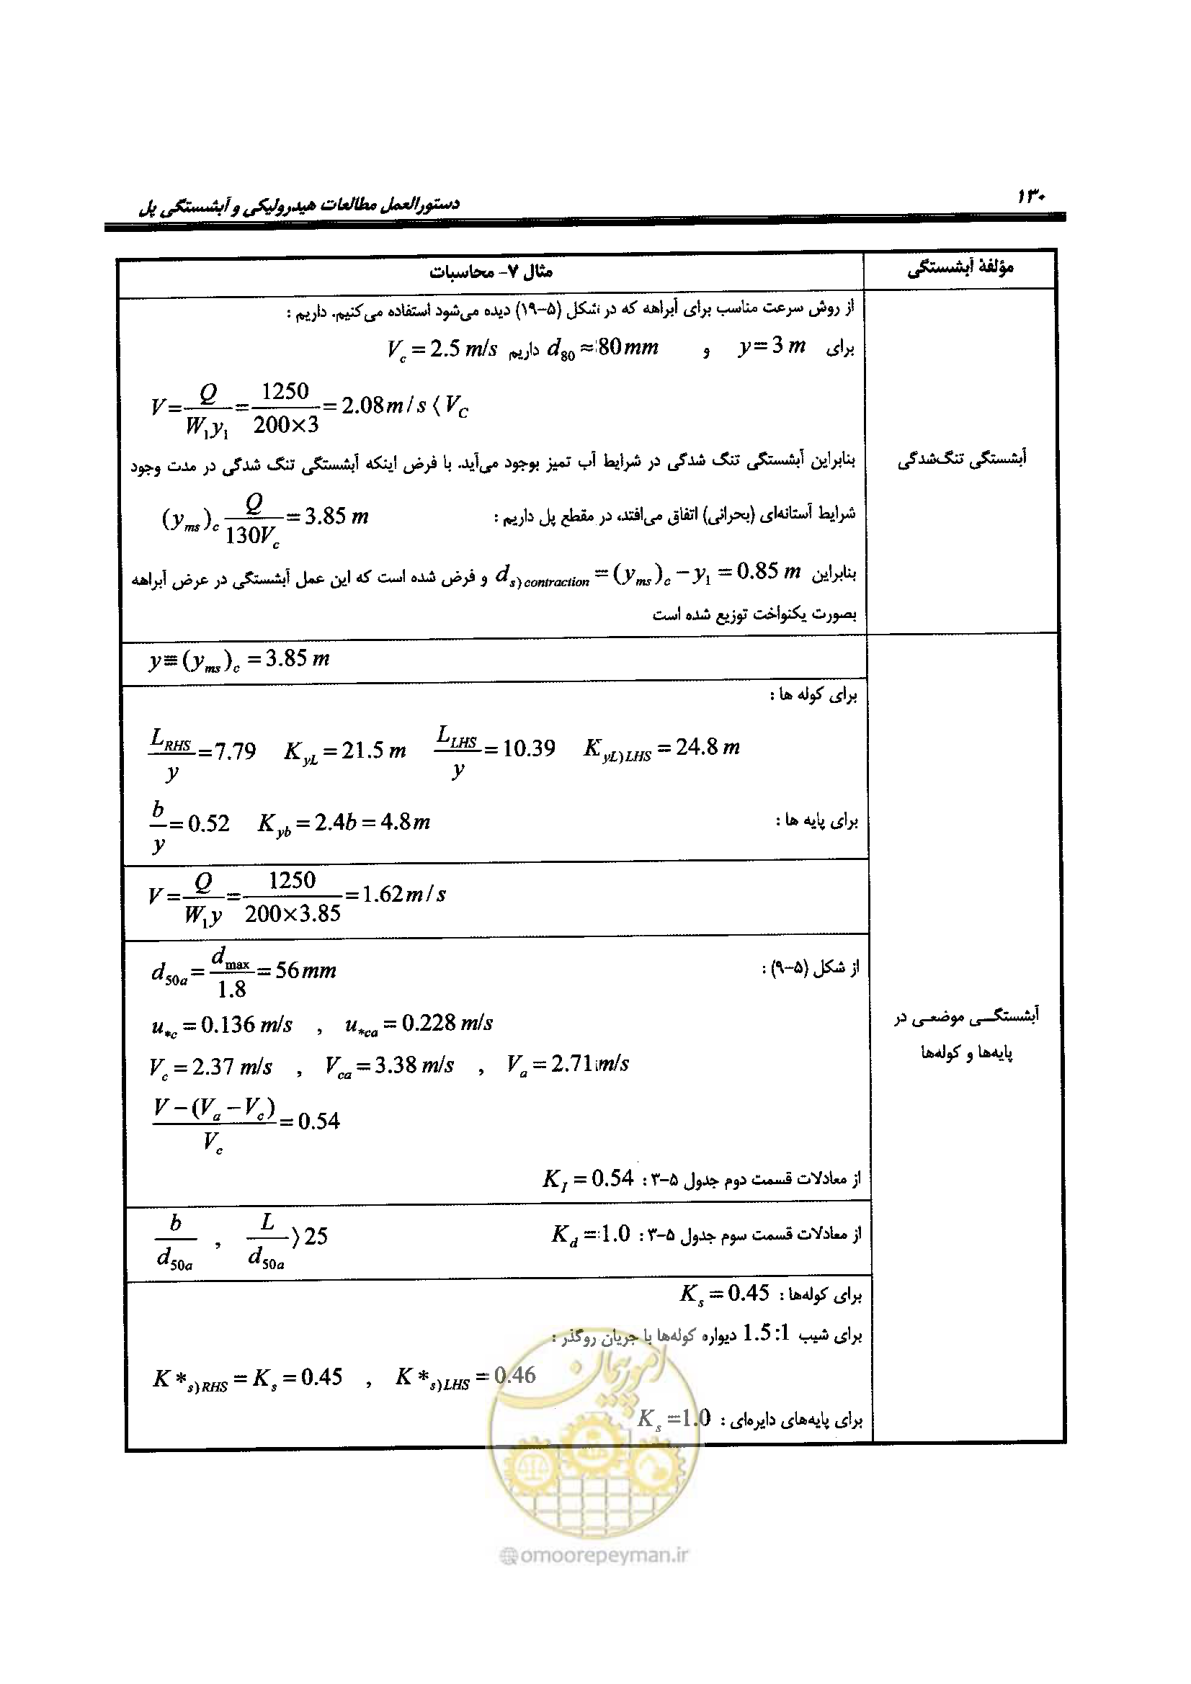 ۱۳۰
دستورالعمل مطالعات هیدرولیکی و آبشستگی پل
مؤلفهٔ آبشستگی
مثال ۷- محاسبات
آبشستگی تنگ‌شدگی
از روش سرعت مناسب برای آبراهه که در شکل (۵-۱۹) دیده می‌شود استفاده می‌کنیم. داریم :
برای y = 3 m و d80 ≈ 80 mm داریم Vc = 2.5 m/s
V = Q/(W1y1) = 1250/(200×3) = 2.08 m/s ⟨ VC
بنابراین آبشستگی تنگ شدگی در شرایط آب تمیز بوجود می‌آید. با فرض اینکه آبشستگی تنگ شدگی در مدت وجود
شرایط آستانه‌ای (بحرانی) اتفاق می‌افتد، در مقطع پل داریم : (yms)c Q/(130Vc) = 3.85 m
بنابراین ds)contraction = (yms)c − y1 = 0.85 m و فرض شده است که این عمل آبشستگی در عرض آبراهه
بصورت یکنواخت توزیع شده است
آبشستگــی موضعــی در
پایه‌ها و کوله‌ها
y ≡ (yms)c = 3.85 m
برای کوله ها :
LRHS/y = 7.79 KyL = 21.5 m LLHS/y = 10.39 KyL)LHS = 24.8 m
برای پایه ها : b/y = 0.52 Kyb = 2.4b = 4.8 m
V = Q/(W1y) = 1250/(200×3.85) = 1.62 m/s
از شکل (۵-۹) : d50a = dmax/1.8 = 56 mm
u*c = 0.136 m/s , u*ca = 0.228 m/s
Vc = 2.37 m/s , Vca = 3.38 m/s , Va = 2.71 m/s
(V − (Va − Vc))/Vc = 0.54
از معادلات قسمت دوم جدول ۵-۳ : KI = 0.54
از معادلات قسمت سوم جدول ۵-۳ : Kd = 1.0 b/d50a , L/d50a ⟩ 25
برای کوله‌ها : Ks = 0.45
برای شیب 1.5:1 دیواره کوله‌ها با جریان روگذر :
K*s)RHS = Ks = 0.45 , K*s)LHS = 0.46
برای پایه‌های دایره‌ای : Ks = 1.0
امور پیمان
@omoorepeyman.ir